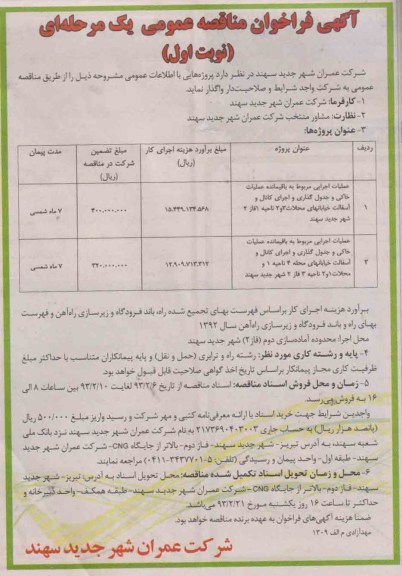 آگهی فراخوان مناقصه عمومی یک مرحله‌ای
(نوبت اول)
شرکت عمران شهر جدید سهند در نظر دارد پروژه‌هایی با اطلاعات عمومی مشروحه ذیل را از طریق مناقصه
عمومی به شرکت واجد شرایط و صلاحیت‌دار واگذار نماید.
۱- کارفرما: شرکت عمران شهر جدید سهند
۲- نظارت: مشاور منتخب شرکت عمران شهر جدید سهند
۳- عنوان پروژه‌ها:
ردیف عنوان پروژه مبلغ برآورد هزینه اجرای کار (ریال) مبلغ تضمین شرکت در مناقصه (ریال) مدت پیمان
۱ عملیات اجرایی مربوط به باقیمانده عملیات
خاکی و جدول گذاری و اجرای کانال و
آسفالت خیابانهای محلات ۲و۳ ناحیه ۱فاز ۲
شهر جدید سهند
۱۵.۴۴۹.۱۳۴.۵۶۸ ۴۰۰.۰۰۰.۰۰۰ ۷ ماه شمسی
۲ عملیات اجرایی مربوط به باقیمانده عملیات
خاکی و جدول گذاری و اجرای کانال و
آسفالت خیابانهای محله ۴ ناحیه ۱ و
محلات ۱و۲ ناحیه ۳ فاز ۲ شهر جدید سهند
۱۲.۹۰۹.۷۱۳.۳۱۲ ۳۲۰.۰۰۰.۰۰۰ ۷ ماه شمسی
برآورد هزینه اجرای کار براساس فهرست بهای تجمیع شده راه، باند فرودگاه و زیرسازی راه‌آهن و فهرست
بهای راه و باند فرودگاه و زیرسازی راه‌آهن سال ۱۳۹۲
محل اجرا: محدوده آماده‌سازی دوم (فاز۲) شهر جدید سهند
۴- پایه و رشته کاری مورد نظر: رشته راه و ترابری (حمل و نقل) و پایه پیمانکاران متناسب با حداکثر مبلغ
ظرفیت کاری مجاز پیمانکار براساس تاریخ اخذ گواهی صلاحیت قابل قبول خواهد بود.
۵- زمان و محل فروش اسناد مناقصه: اسناد مناقصه از تاریخ ۹۳/۲/۶ لغایت ۹۳/۲/۱۰ بین ساعات ۸ الی
۱۶ به فروش می‌رسد.
واجدین شرایط جهت خرید اسناد با ارائه معرفی‌نامه کتبی و مهر شرکت و رسید واریز مبلغ ۵۰۰/۰۰۰ ریال
(پانصد هزار ریال) به حساب جاری ۲۱۷۳۶۹۰۴۰۳۰۰۳ به نام شرکت عمران شهر جدید سهند نزد بانک ملی
شعبه سهند به آدرس تبریز- شهر جدید سهند- فاز دوم- بالاتر از جایگاه CNG- شرکت عمران شهر جدید
سهند- طبقه اول- واحد پیمان و رسیدگی (تلفن: ۵-۳۴۳۷۷۰۱-۰۴۱۱) مراجعه نمایند.
۶- محل و زمان تحویل اسناد تکمیل شده مناقصه: محل تحویل اسناد به آدرس: تبریز- شهر جدید
سهند- فاز دوم- بالاتر از جایگاه CNG- شرکت عمران شهر جدید سهند- طبقه همکف- واحد دبیرخانه و
حداکثر تا ساعت ۱۶ روز یکشنبه مورخ ۹۳/۲/۲۱ می‌باشد.
ضمنا هزینه آگهی‌های فراخوان به عهده برنده مناقصه خواهد بود.
م الف ۱۳۰۹
شرکت عمران شهر جدید سهند